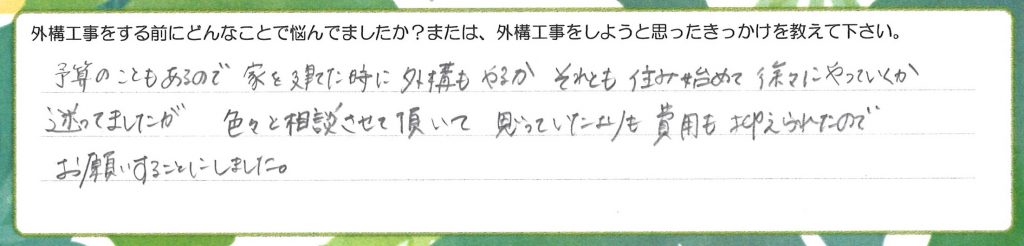 外構工事をする前にどんなことで悩んでましたか？または、外構工事をしようと思ったきっかけを教えて下さい。
予算のこともあるので 家を建てた時に 外構も やるか それとも 住み始めて 徐々にやっていくか
迷ってましたが 色々と相談させて頂いて 思っていたよりも 費用も 抑えられたので
お願いすることにしました。